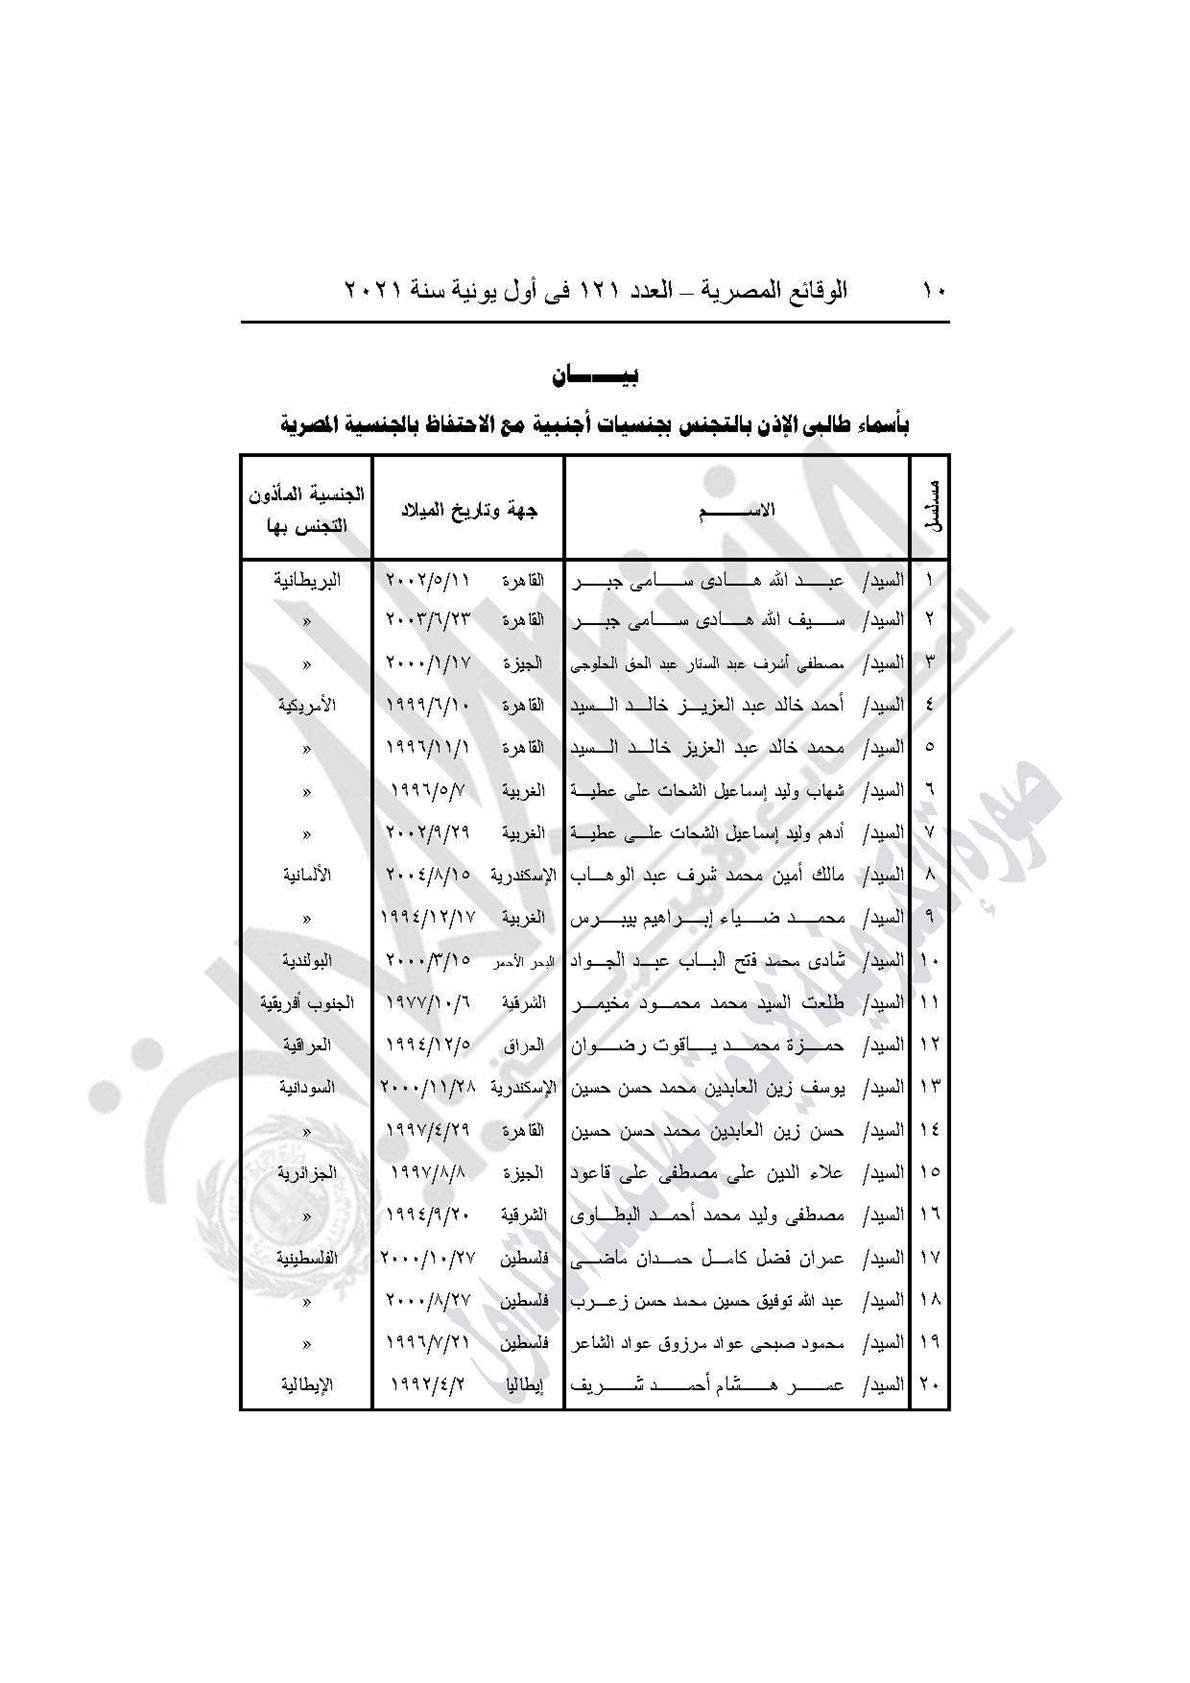 ١٠ الوقائع المصرية – العدد ١٢١ فى أول يونية سنة ٢٠٢١
بيـــــان
بأسماء طالبى الإذن بالتجنس بجنسيات أجنبية مع الاحتفاظ بالجنسية المصرية
مسلسل الاســـــم جهة وتاريخ الميلاد الجنسية المأذون التجنس بها
١ السيد/ عبـــد الله هـــادى ســـامى جبـــر القاهرة ٢٠٠٢/٥/١١ البريطانية
٢ السيد/ ســـيف الله هـــادى ســـامى جبـــر القاهرة ٢٠٠٣/٦/٢٣ »
٣ السيد/ مصطفى أشرف عبد الستار عبد الحق الحلوجى الجيزة ٢٠٠٠/١/١٧ »
٤ السيد/ أحمد خالد عبد العزيـــز خالـــد الـــسيد القاهرة ١٩٩٩/٦/١٠ الأمريكية
٥ السيد/ محمد خالد عبد العزيز خالـــد الـــسيد القاهرة ١٩٩٦/١١/١ »
٦ السيد/ شهاب وليد إسماعيل الشحات على عطيـــة الغربية ١٩٩٦/٥/٧ »
٧ السيد/ أدهم وليد إسماعيل الشحات علـــى عطيـــة الغربية ٢٠٠٢/٩/٢٩ »
٨ السيد/ مالك أمين محمد شرف عبد الوهـــاب الإسكندرية ٢٠٠٤/٨/١٥ الألمانية
٩ السيد/ محمـــد ضـــياء إبـــراهيم بيبـــرس الغربية ١٩٩٤/١٢/١٧ »
١٠ السيد/ شادى محمد فتح البـــاب عبـــد الجـــواد البحر الأحمر ٢٠٠٠/٣/١٥ البولندية
١١ السيد/ طلعت السيد محمد محمـــود مخيمـــر الشرقية ١٩٧٧/١٠/٦ الجنوب أفريقية
١٢ السيد/ حمـــزة محمـــد يـــاقوت رضـــوان العراق ١٩٩٤/١٢/٥ العراقية
١٣ السيد/ يوسف زين العابدين محمد حسن حسين الإسكندرية ٢٠٠٠/١١/٢٨ السودانية
١٤ السيد/ حسن زين العابدين محمد حسن حسين القاهرة ١٩٩٧/٤/٢٩ »
١٥ السيد/ علاء الدين على مصطفى على قاعود الجيزة ١٩٩٧/٨/٨ الجزائرية
١٦ السيد/ مصطفى وليد محمد أحمـــد البطـــاوى الشرقية ١٩٩٤/٩/٢٠ »
١٧ السيد/ عمران فضل كامـــل حمـــدان ماضـــى فلسطين ٢٠٠٠/١٠/٢٧ الفلسطينية
١٨ السيد/ عبد الله توفيق حسين محمد حسن زعـــرب فلسطين ٢٠٠٠/٨/٢٧ »
١٩ السيد/ محمود صبحى عواد مرزوق عواد الشاعر فلسطين ١٩٩٦/٧/٢١ »
٢٠ السيد/ عمـــر هـــشام أحمـــد شـــريف إيطاليا ١٩٩٢/٤/٢ الإيطالية
صورة إلكترونية لا يعتد بها عند التداول